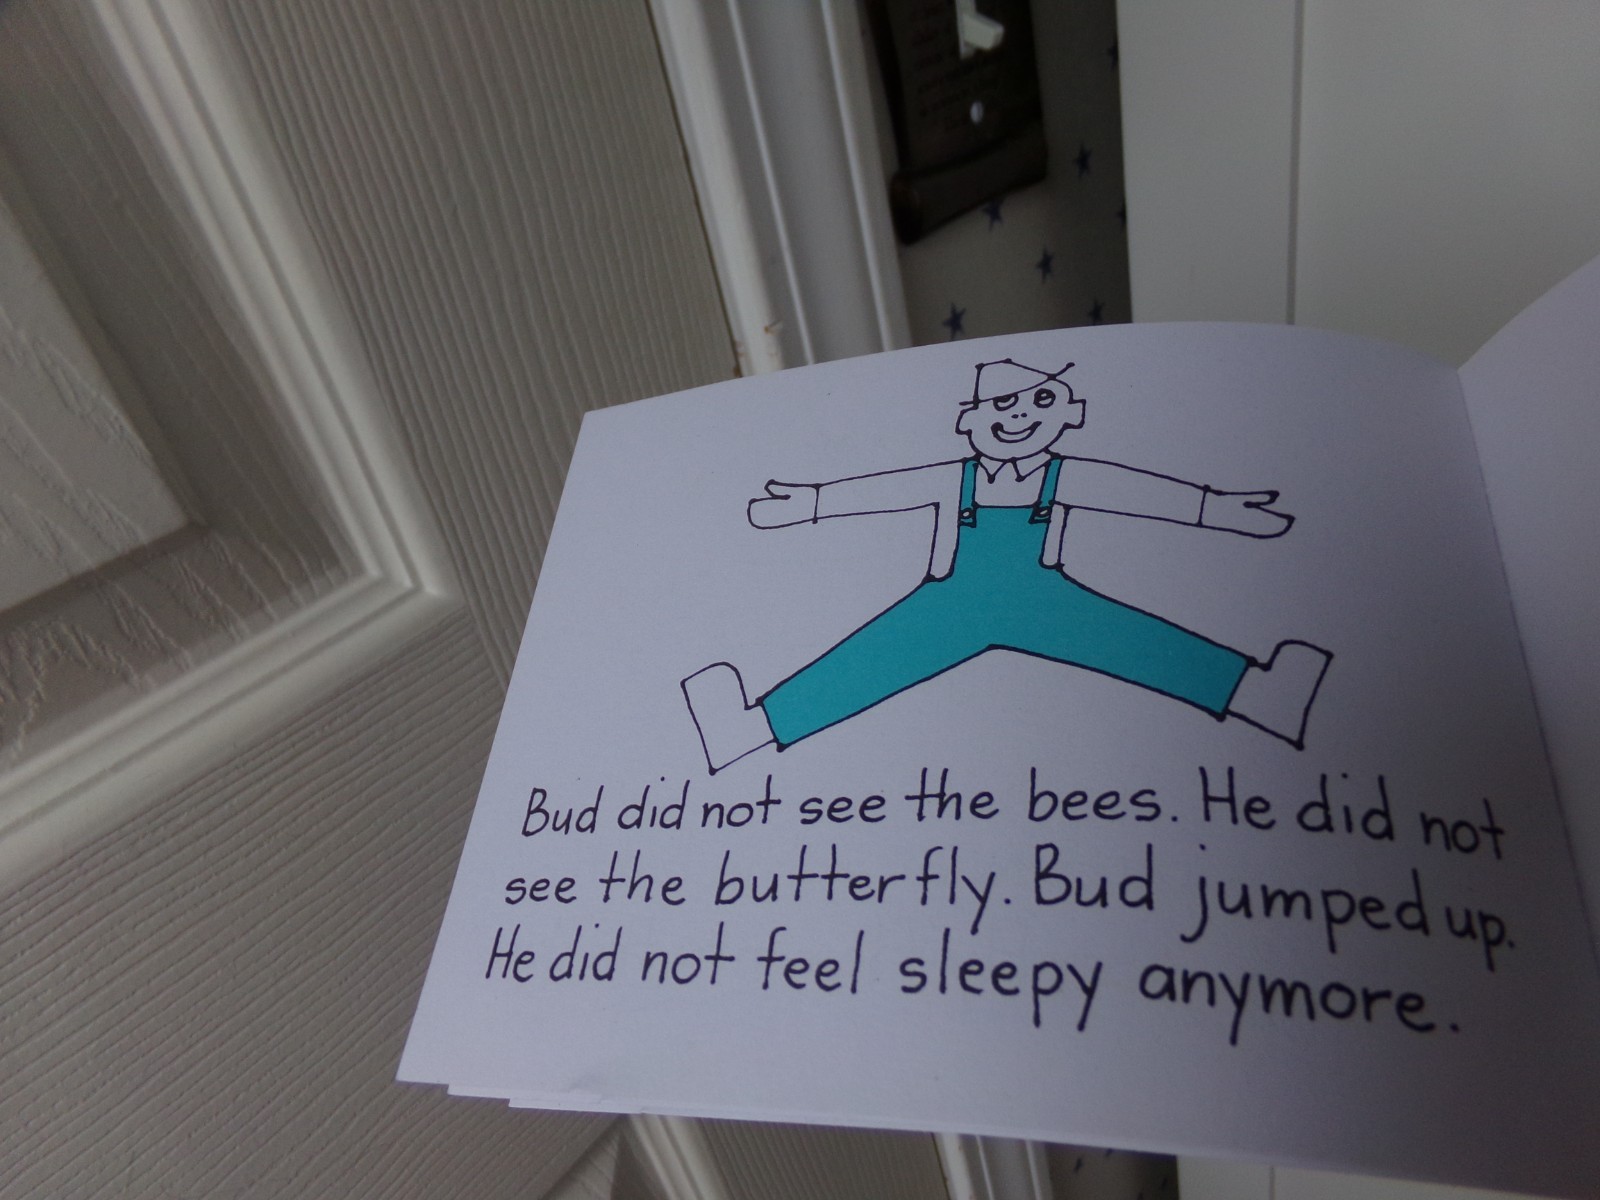 Bud did not see the bees. He did not
see the butterfly. Bud jumped up.
He did not feel sleepy anymore.